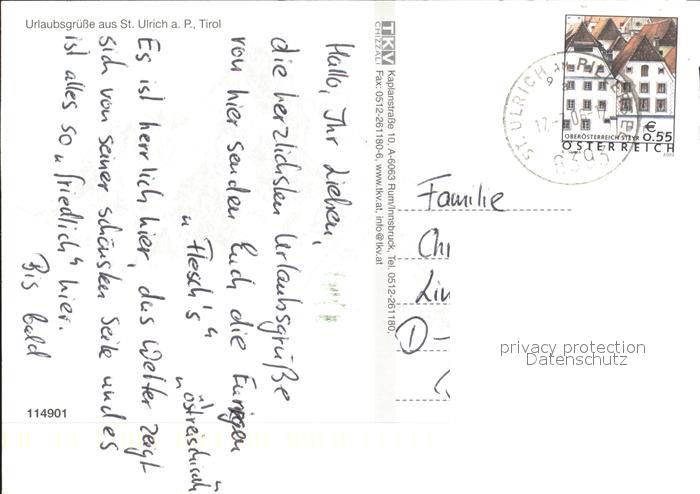 Urlaubsgrüße aus St. Ulrich a. P., Tirol
Hallo, Ihr Lieben,
die herzlichsten Urlaubsgrüße
von hier senden Euch die Eurigen
„Flesch's“
„östreichisch“
Es ist herrlich hier, das Wetter zeigt
sich von seiner schönsten Seite und es
ist alles so „friedlich“ hier.
Bis bald
114901
TKV
CHIZZALI
Kaplanstraße 10, A-6063 Rum/Innsbruck, Tel. 0512-261180,
Fax: 0512-261180-6, www.tkv.at, info@tkv.at
ST. ULRICH AM PILLERSEE
6393
OBERÖSTERREICH STEYR
€ 0,55
ÖSTERREICH
Familie
Ch
Lin
D-
privacy protection
Datenschutz